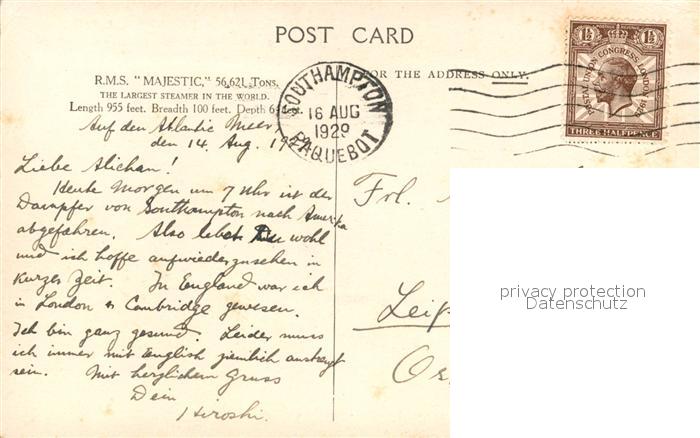 POST CARD
R.M.S. "MAJESTIC," 56,621 Tons.
THE LARGEST STEAMER IN THE WORLD.
Length 955 feet. Breadth 100 feet. Depth
FOR THE ADDRESS ONLY.
SOUTHAMPTON
16 AUG
1929
PAQUEBOT
1½ 1½
POSTAL UNION CONGRESS LONDON 1929
THREE HALFPENCE
Auf den Atlantic Meer,
den 14. Aug. 1929
Liebe Alichan!
Heute Morgen um 7 Uhr ist der
Dampfer von Southampton nach Amerika
abgefahren. Also lebe Du wohl
und ich hoffe aufwiederzusehen in
kurzer Zeit. In England war ich
in London & Cambridge gewesen.
Ich bin ganz gesund. Leider muss
ich immer mit English ziemlich
sein. Mit herzlichem Gruss
Dein
Hiroshi.
Frl.
Leip
privacy protection
Datenschutz